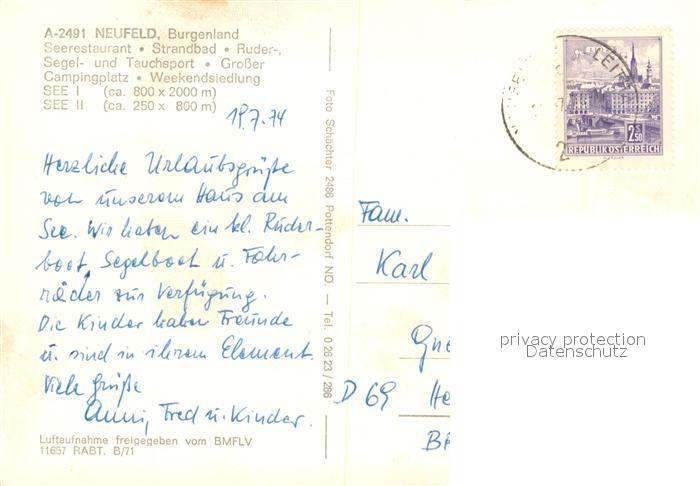 A-2491 NEUFELD, Burgenland
Seerestaurant • Strandbad • Ruder-,
Segel- und Tauchsport • Großer
Campingplatz • Weekendsiedlung
SEE I (ca. 800 x 2000 m)
SEE II (ca. 250 x 800 m)
19.7.74
Herzliche Urlaubsgrüße
von unserem Haus am
See. Wir haben ein kl. Ruder-
boot, Segelboot u. Fahr-
räder zur Verfügung.
Die Kinder haben Freunde
u. sind in ihrem Element.
Viele Grüße
Anni, Fred u. Kinder.
Luftaufnahme freigegeben vom BMFLV
11657 RABT. B/71
Foto Schächter 2486 Pottendorf NÖ. — Tel. 0 26 23 / 286
LEIT
2 S 50
REPUBLIK ÖSTERREICH
Fam.
Karl
D 69 He
privacy protection
Datenschutz